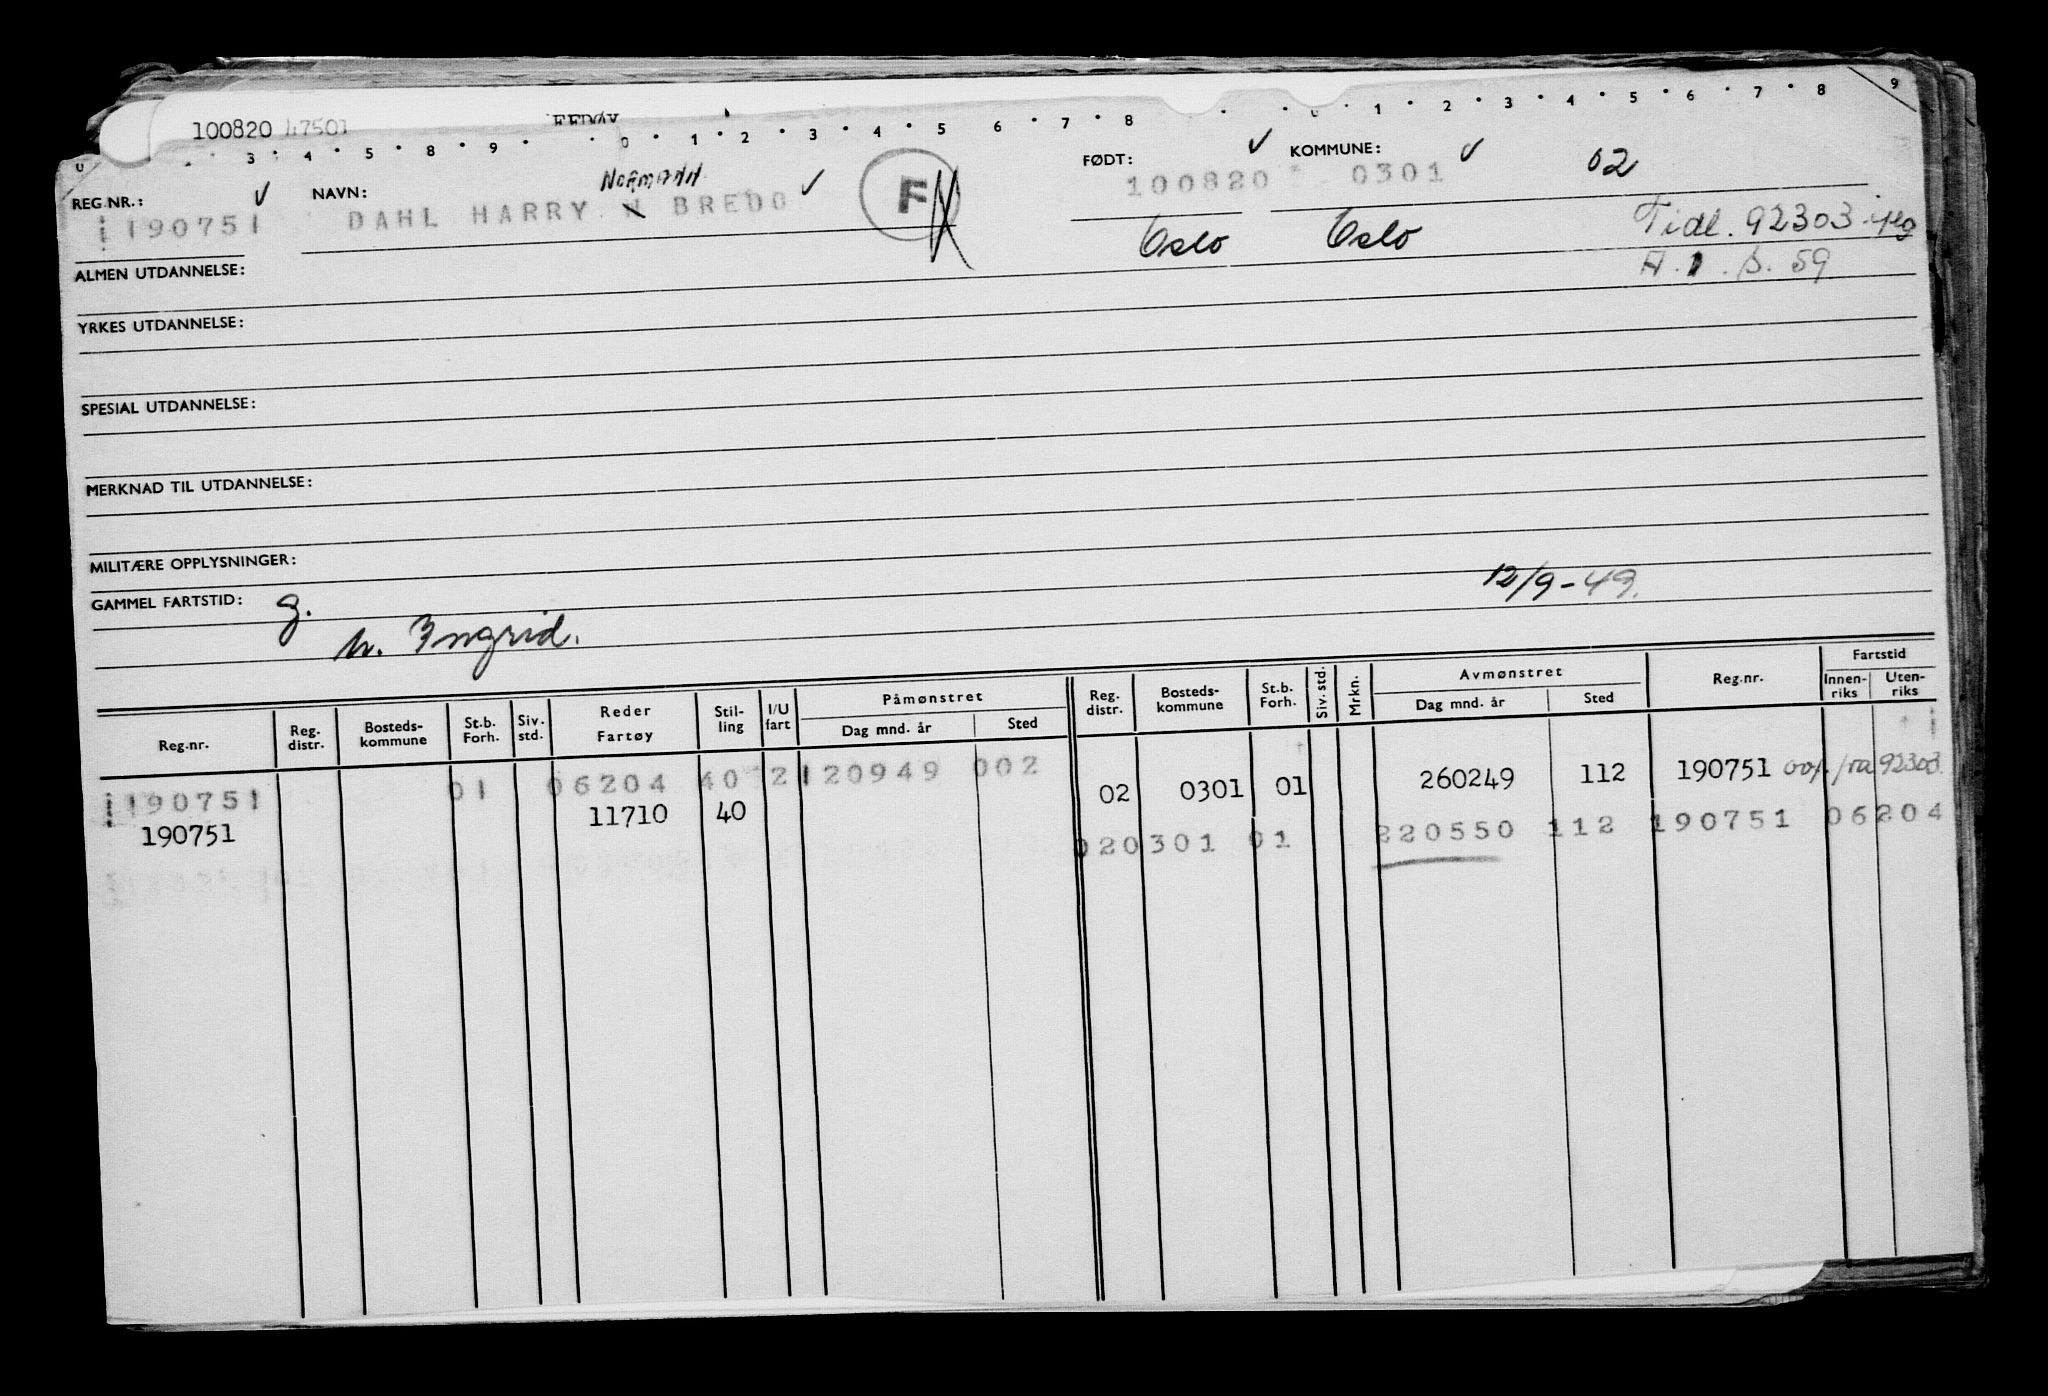 100820 47501
0 3 4 5 8 9 0 1 2 3 4 5 6 7 8 0 1 2 3 4 5 6 7 8 9
REG.NR.: NAVN: Normann FØDT: KOMMUNE: 02
190751 DAHL HARRY N BREDO F 100820 0301
Oslo Oslo Tidl. 92303
ALMEN UTDANNELSE: A. 1. s. 59
YRKES UTDANNELSE:
SPESIAL UTDANNELSE:
MERKNAD TIL UTDANNELSE:
MILITÆRE OPPLYSNINGER:
12/9-49.
GAMMEL FARTSTID: g.
h. Ingrid.
Reg.nr. Reg. distr. Bosteds-kommune St.b. Forh. Siv. std. Reder Fartøy Stil-ling I/U fart Påmønstret Dag mnd. år Sted Reg. distr. Bosteds-kommune St.b. Forh. Siv. std. Mrkn. Avmønstret Dag mnd. år Sted Reg.nr. Fartstid Innen-riks Uten-riks
190751 01 06204 40 2 120949 002 02 0301 01 260249 112 190751 92303
190751 11710 40 020301 01 220550 112 190751 06204